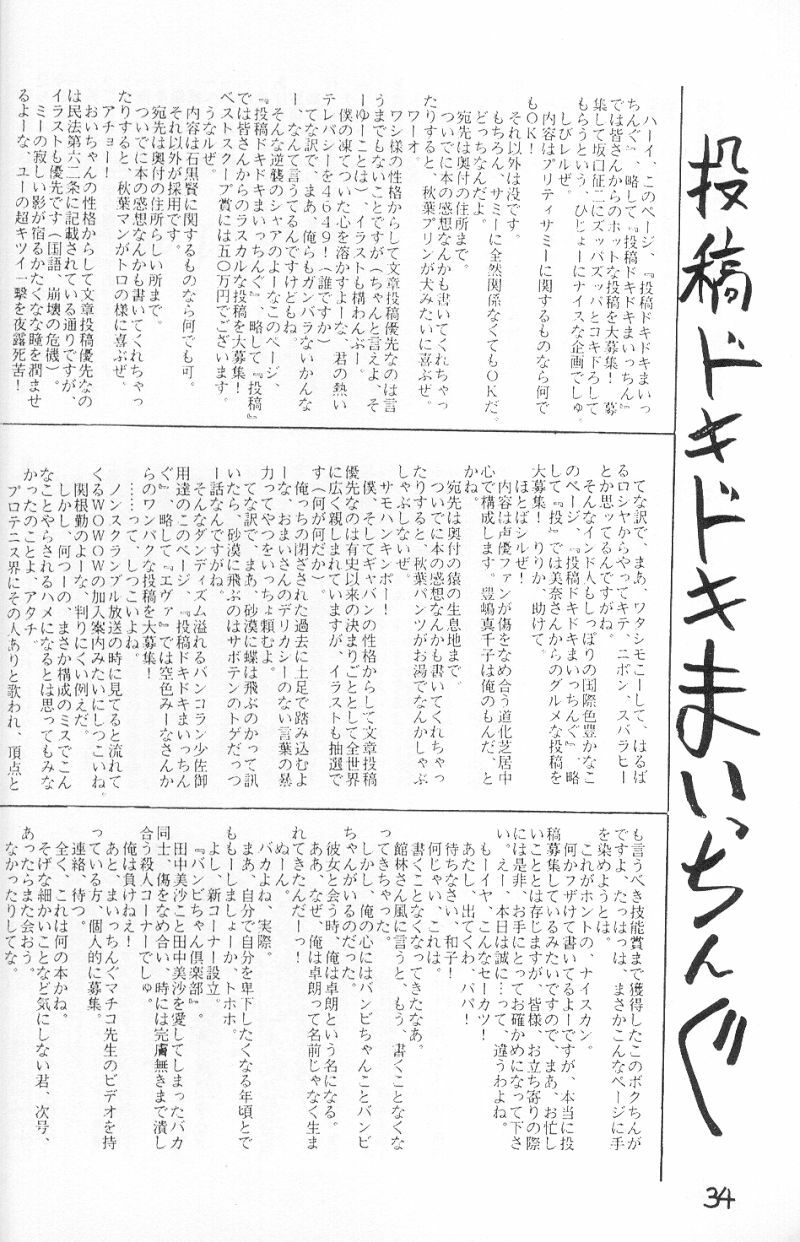 投稿ドキドキまいっちんぐ
ハーイ、このページ、『投稿ドキドキまいっ
ちんぐ』、略して『投稿ドキドキまいっちん』
では皆さんからのホットな投稿を大募集！　募
集して坂口征二にズッパズッパとコキ下ろして
もらうという、ひじょーにナイスな企画でしゅ。
しびレルぜ。
内容はプリティサミーに関するものなら何で
もＯＫ！
それ以外は没です。
もちろん、サミーに全然関係なくてもＯＫだ。
どっちなんだよ。
宛先は奥付の住所まで。
ついでに本の感想なんかも書いてくれちゃっ
たりすると、秋葉プリンが犬みたいに喜ぶぜ。
ワーオ。
ワシ様の性格からして文章投稿優先なのは言
うまでもないことですが（ちゃんと言えよ、そ
ーゆーことは）、イラストも構わんぶー。
僕の凍てついた心を溶かすよーな、君の熱い
テレパシーを４６４９！（誰ですか）
てな訳で、まあ、俺らもガンバラないかんな
ー、なんて言うてるんですけどもね。
そんな逆襲のシャアのよーなこのページ、
『投稿ドキドキまいっちんぐ』、略して『投稿』
では皆さんからのラスカルな投稿を大募集！
ベストスクープ賞には五〇万円でございます。
うなルぜ。
内容は石黒賢に関するものなら何でも可。
それ以外が採用です。
宛先は奥付の住所らしい所まで。
ついでに本の感想なんかも書いてくれちゃっ
たりすると、秋葉マンがトロの様に喜ぶぜ、
アチョー！
おいちゃんの性格からして文章投稿優先なの
は民法第六二条に記載されている通りですが、
イラストも優先です（国語、崩壊の危機）。
ミーの寂しい影が宿るかたくなな瞳を潤ませ
るよーな、ユーの超キツイ一撃を夜露死苦！
てな訳で、まあ、ワタシモこーして、はるば
るロシヤからやってキテ、ニポン、スバラヒー
とか思ってるんですがね。
そんなインド人もしっぽりの国際色豊かなこ
のページ、『投稿ドキドキまいっちんぐ』、略
して『投』では美奈さんからのグルメな投稿を
大募集！　りりか、助けて。
ほとばシルぜ！
内容は声優ファンが傷をなめ合う道化芝居中
心で構成します。豊嶋真千子は俺のもんだ、と
かね。
宛先は奥付の猿の生息地まで。
ついでに本の感想なんかも書いてくれちゃっ
たりすると、秋葉パンツがお湯でなんかしゃぶ
しゃぶしないぜ。
サモハンキンポー！
僕、そしてギャバンの性格からして文章投稿
優先なのは有史以来の決まりごととして全世界
に広く親しまれていますが、イラストも抽選で
す（何が何だか）。
俺っちの閉ざされた過去に土足で踏み込むよ
ーな、おまいさんのデリカシーのない言葉の暴
力ってやつをいっちょ頼むよ。
てな訳で、まあ、砂漠に蝶は飛ぶのかって訊
いたら、砂漠に飛ぶのはサボテンのトゲだっつ
ー話なんですがね。
そんなダンディズム溢れるバンコラン少佐御
用達のこのページ、『投稿ドキドキまいっちん
ぐ』、略して『エヴァ』では空色みーなさんか
らのワンパクな投稿を大募集！
……って、しつこいよね。
ノンスクランブル放送の時に見てると流れて
くるＷＯＷＯＷの加入案内みたいにしつこいね。
関根勤のよーな、判りにくい例えだ。
しかし、何つーの、まさか構成のミスでこん
なことやらされるハメになるとは思ってもみな
かったのことよ、アタチ。
プロテニス界にその人ありと歌われ、頂点と
も言うべき技能賞まで獲得したこのボクちんが
ですよ、たっはっは、まさかこんなページに手
を染めようとは。
これがホントの、ナイスカン。
何かフザけて書いてるよーですが、本当に投
稿募集しているみたいですので、まあ、お忙し
いこととは存じますが、皆様、お立ち寄りの際
には是非、お手にとってお確かめになって下さ
い。えー、本日は誠に…って、違うわよね。
もーイヤ、こんなセーカツ！
あたし、出てくわ、パパ！
待ちなさい、和子！
何じゃい、これは。
書くことなくなってきたなあ。
館林さん風に言うと、もう、書くことなくな
ってきちゃった。
しかし、俺の心にはバンビちゃんことバンビ
ちゃんがいるのだった。
彼女と会う時、俺は卓朗という名になる。
ああ、なぜ、俺は卓朗って名前じゃなく生ま
れてきたんだーっ！
ぬーん。
バカよね、実際。
まあ、自分で自分を卑下したくなる年頃とで
ももーしましょーか、トホホ。
よし、新コーナー設立。
『バンビちゃん倶楽部』。
田中美沙こと田中美沙を愛してしまったバカ
同士、傷をなめ合い、時には完膚無きまで潰し
合う殺人コーナーでしゅ。
俺は負けねえ！
あと、まいっちんぐマチコ先生のビデオを持
っている方、個人的に募集。
連絡、待つ。
全く、これは何の本かね。
そげな細かいことなど気にしない君、次号、
あったらまた会おう。
なかったりしてな。
34